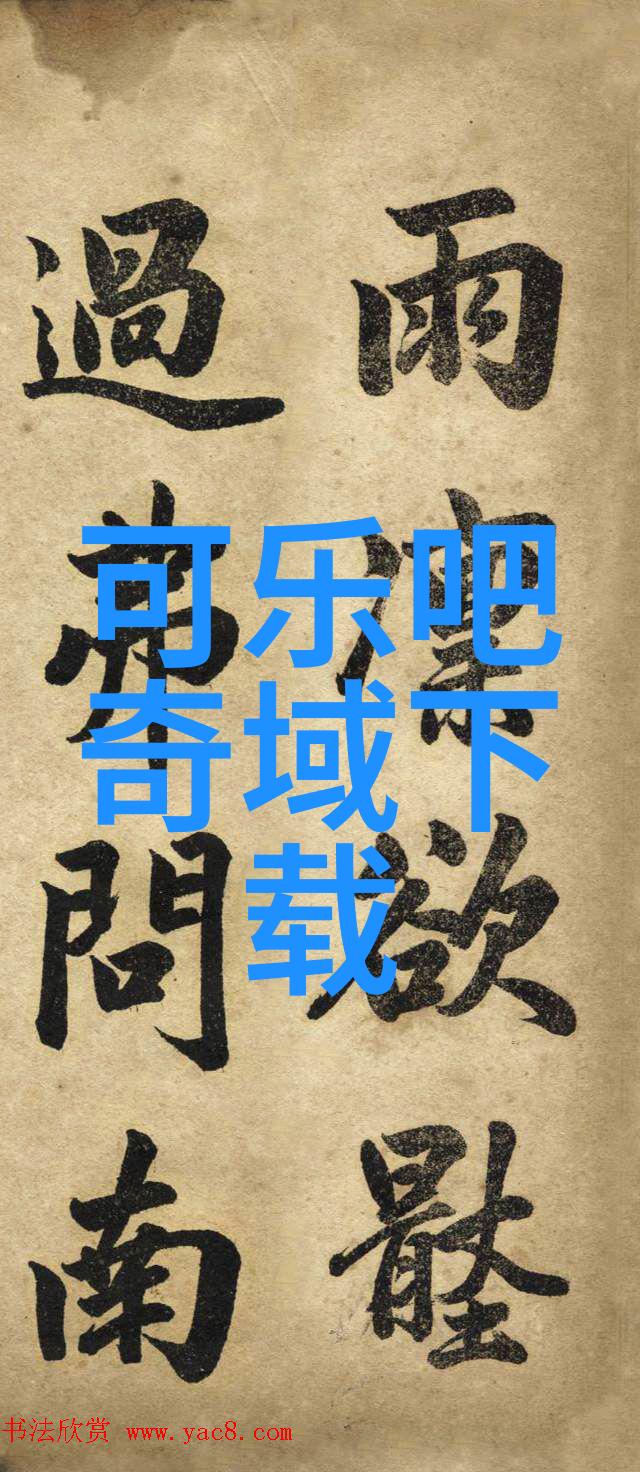 雨 欲
過 問南
可乐吧
奇域下
载
书法欣赏 www.yac8.com